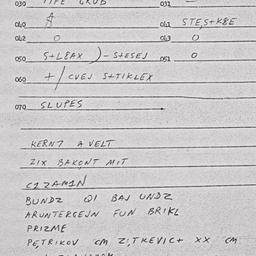 030 TIPE GRUB 032 —
040 A 041 STE,S+K8E
042 O 043 O
050 S+L8AX ) - S+ESEJ 051 O
060 +/ CVEJ S+TIKLEX
070 SLUPES
KERN7 A VELT
ZIX BAKONT MIT
C1ZAM1N
BUNDZ DI BAJ UNDZ
ARUNTERGEJN FUN BRIKL
PRIZME
PE,TRIKOV CM ZI,TKEVIC+ XX CM